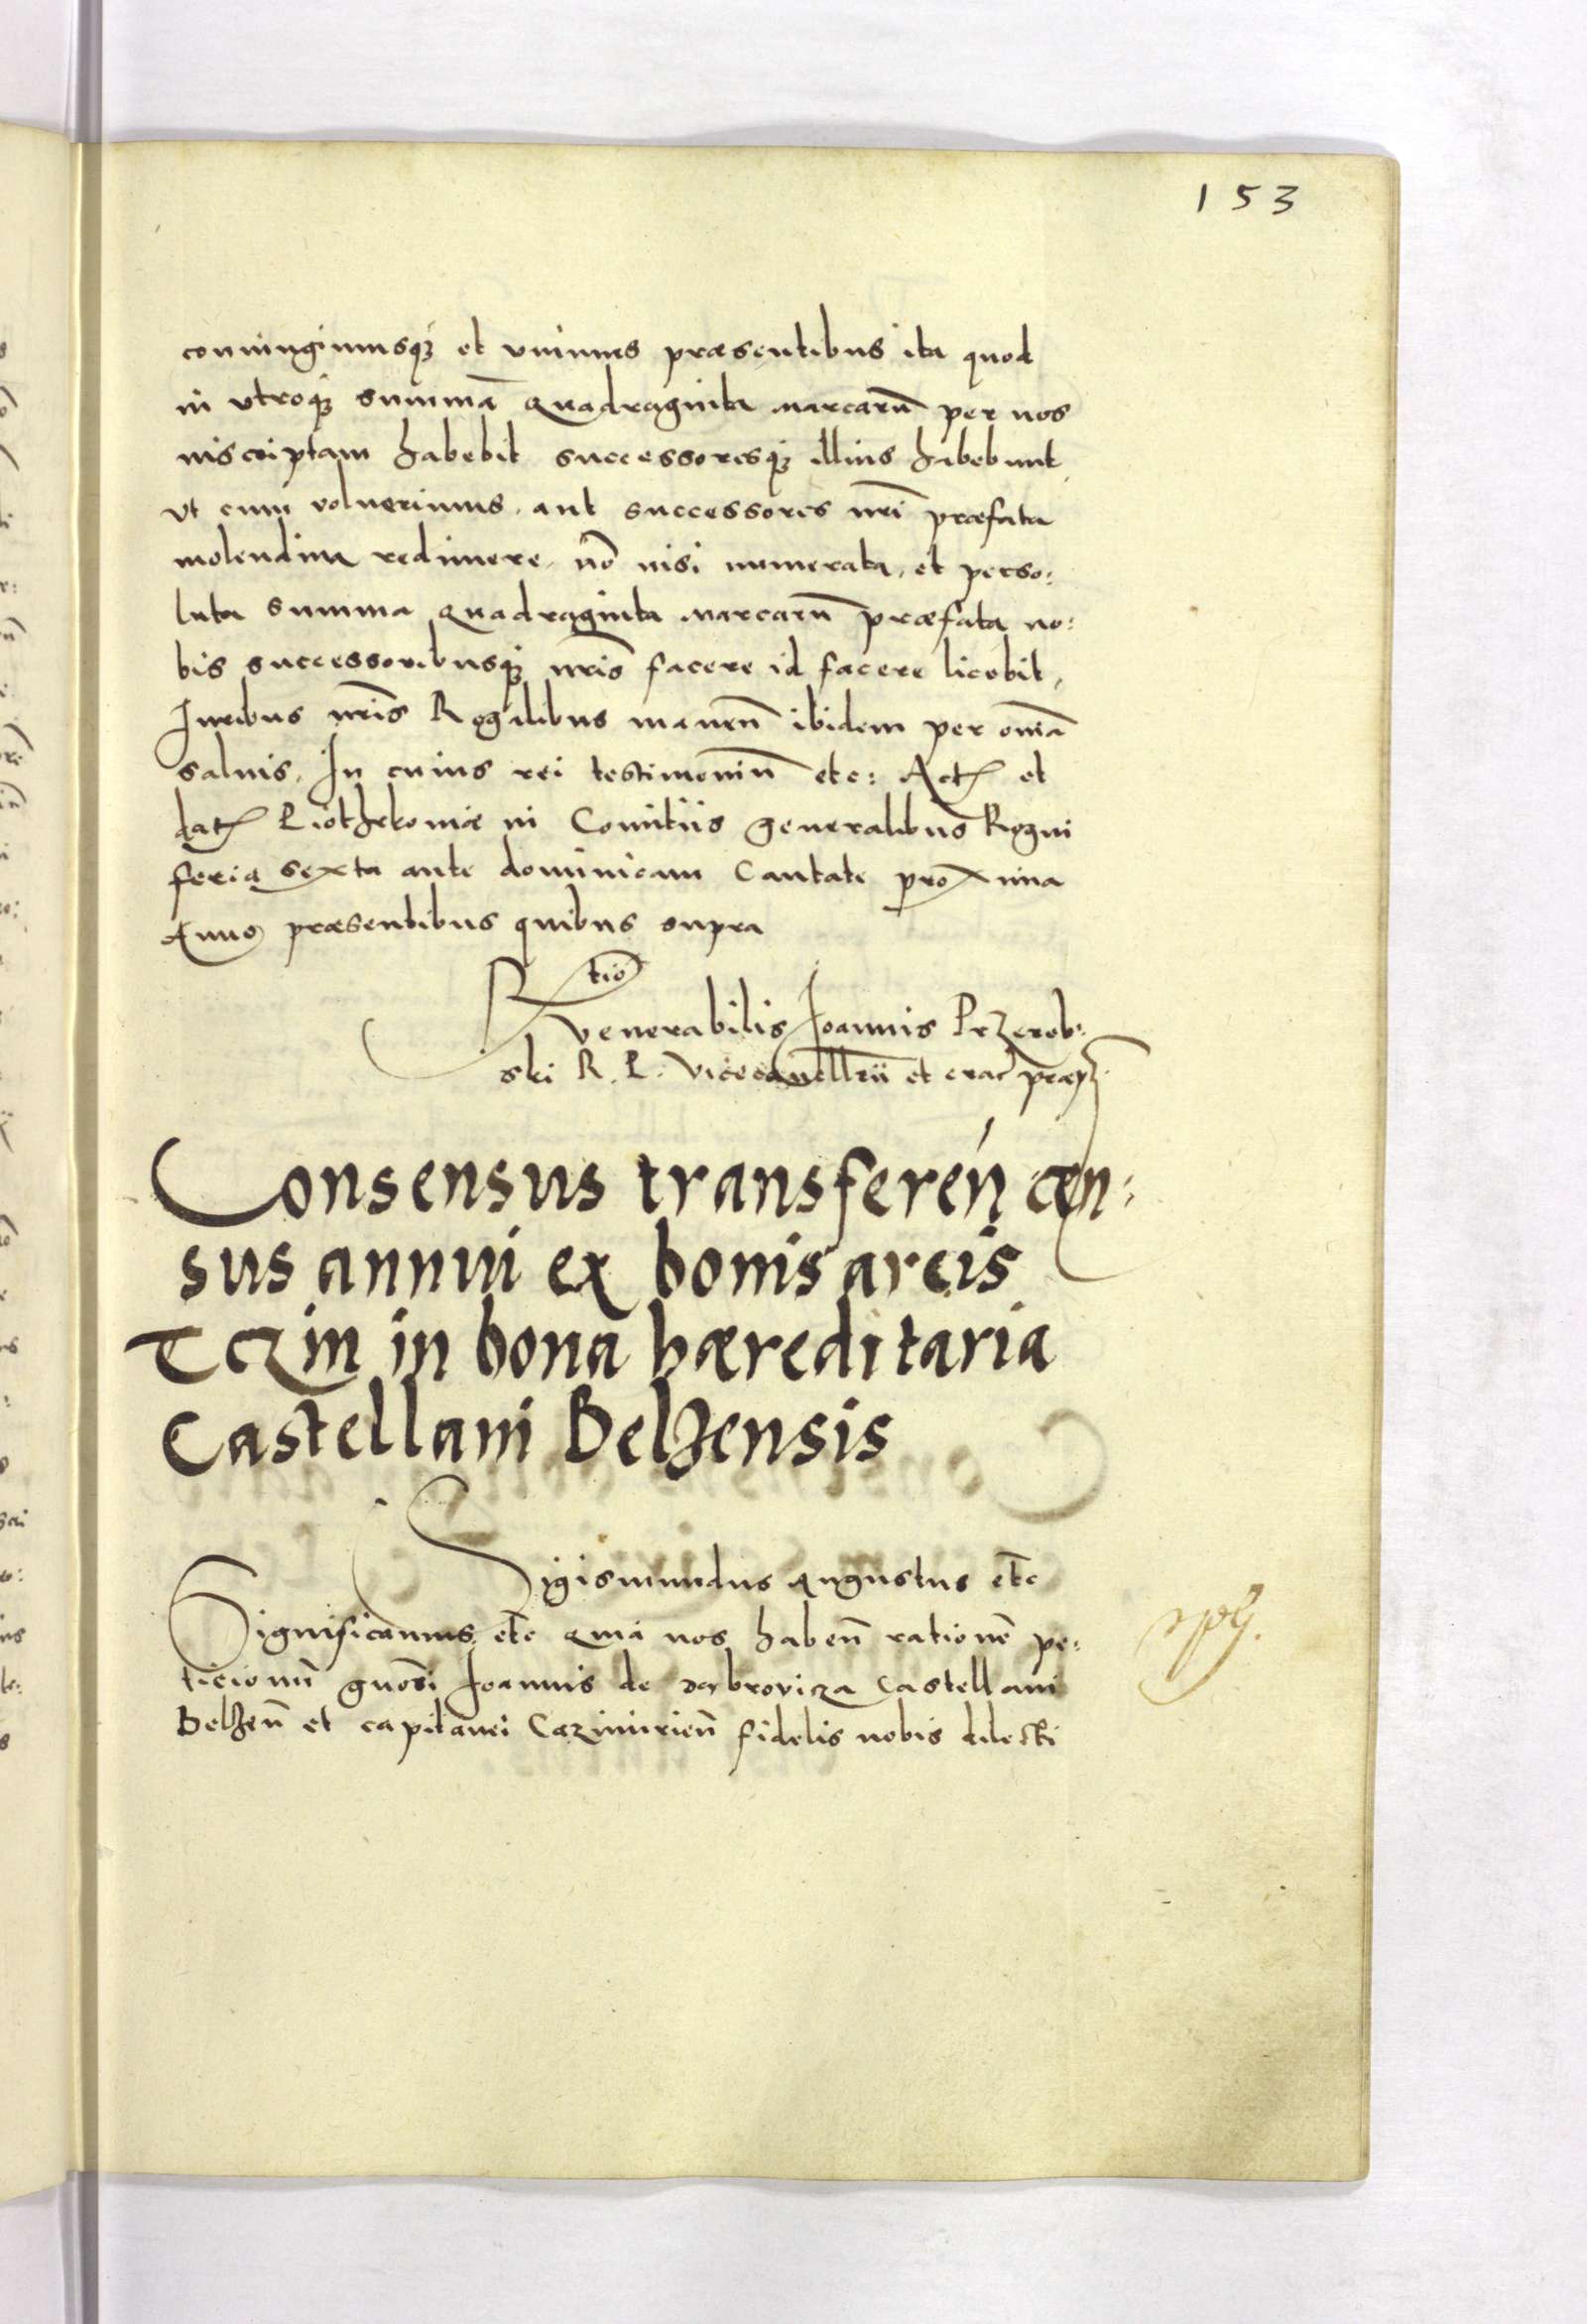 153
coniungimusq; et vnimus præsentibus ita quod
in vtroq; summā Quadraginta marcarū per nos
inscriptam habebit successoresq; illius habebunt,
vt cum voluerimus, aut successores nrī præfata
molendina redimere, nō nisi numerata, et perso:
luta summa quadraginta marcarū præfata no:
bis successoribusq; nrīs facere id facere licebit,
Juribus nrīs Regalibus manen̄ ibidem per omīa
saluis, In cuius rei testimoniū etc: Act et
dat Piothrkoviæ in Comitiis generalibus Regni
feria sexta ante dominicam Cantate proxima
Anno præsentibus quibus supra
Rtio
venerabilis Joannis Przeręb:
ski R. P. Vicecancellrii et crac præpti
Consensus transferen̄ cen:
sus annui ex bonis arcis
Tczin in bona hæreditaria
Castellani Belzensis
Sigismundus Augustus etc
Significamus etc Quia nos haben̄ rationē pe:
ticionū gnosi Joannis de Dąbroviza Castellani
Belzen̄ et capitanei Cazimirien̄ fidelis nobis dilecti